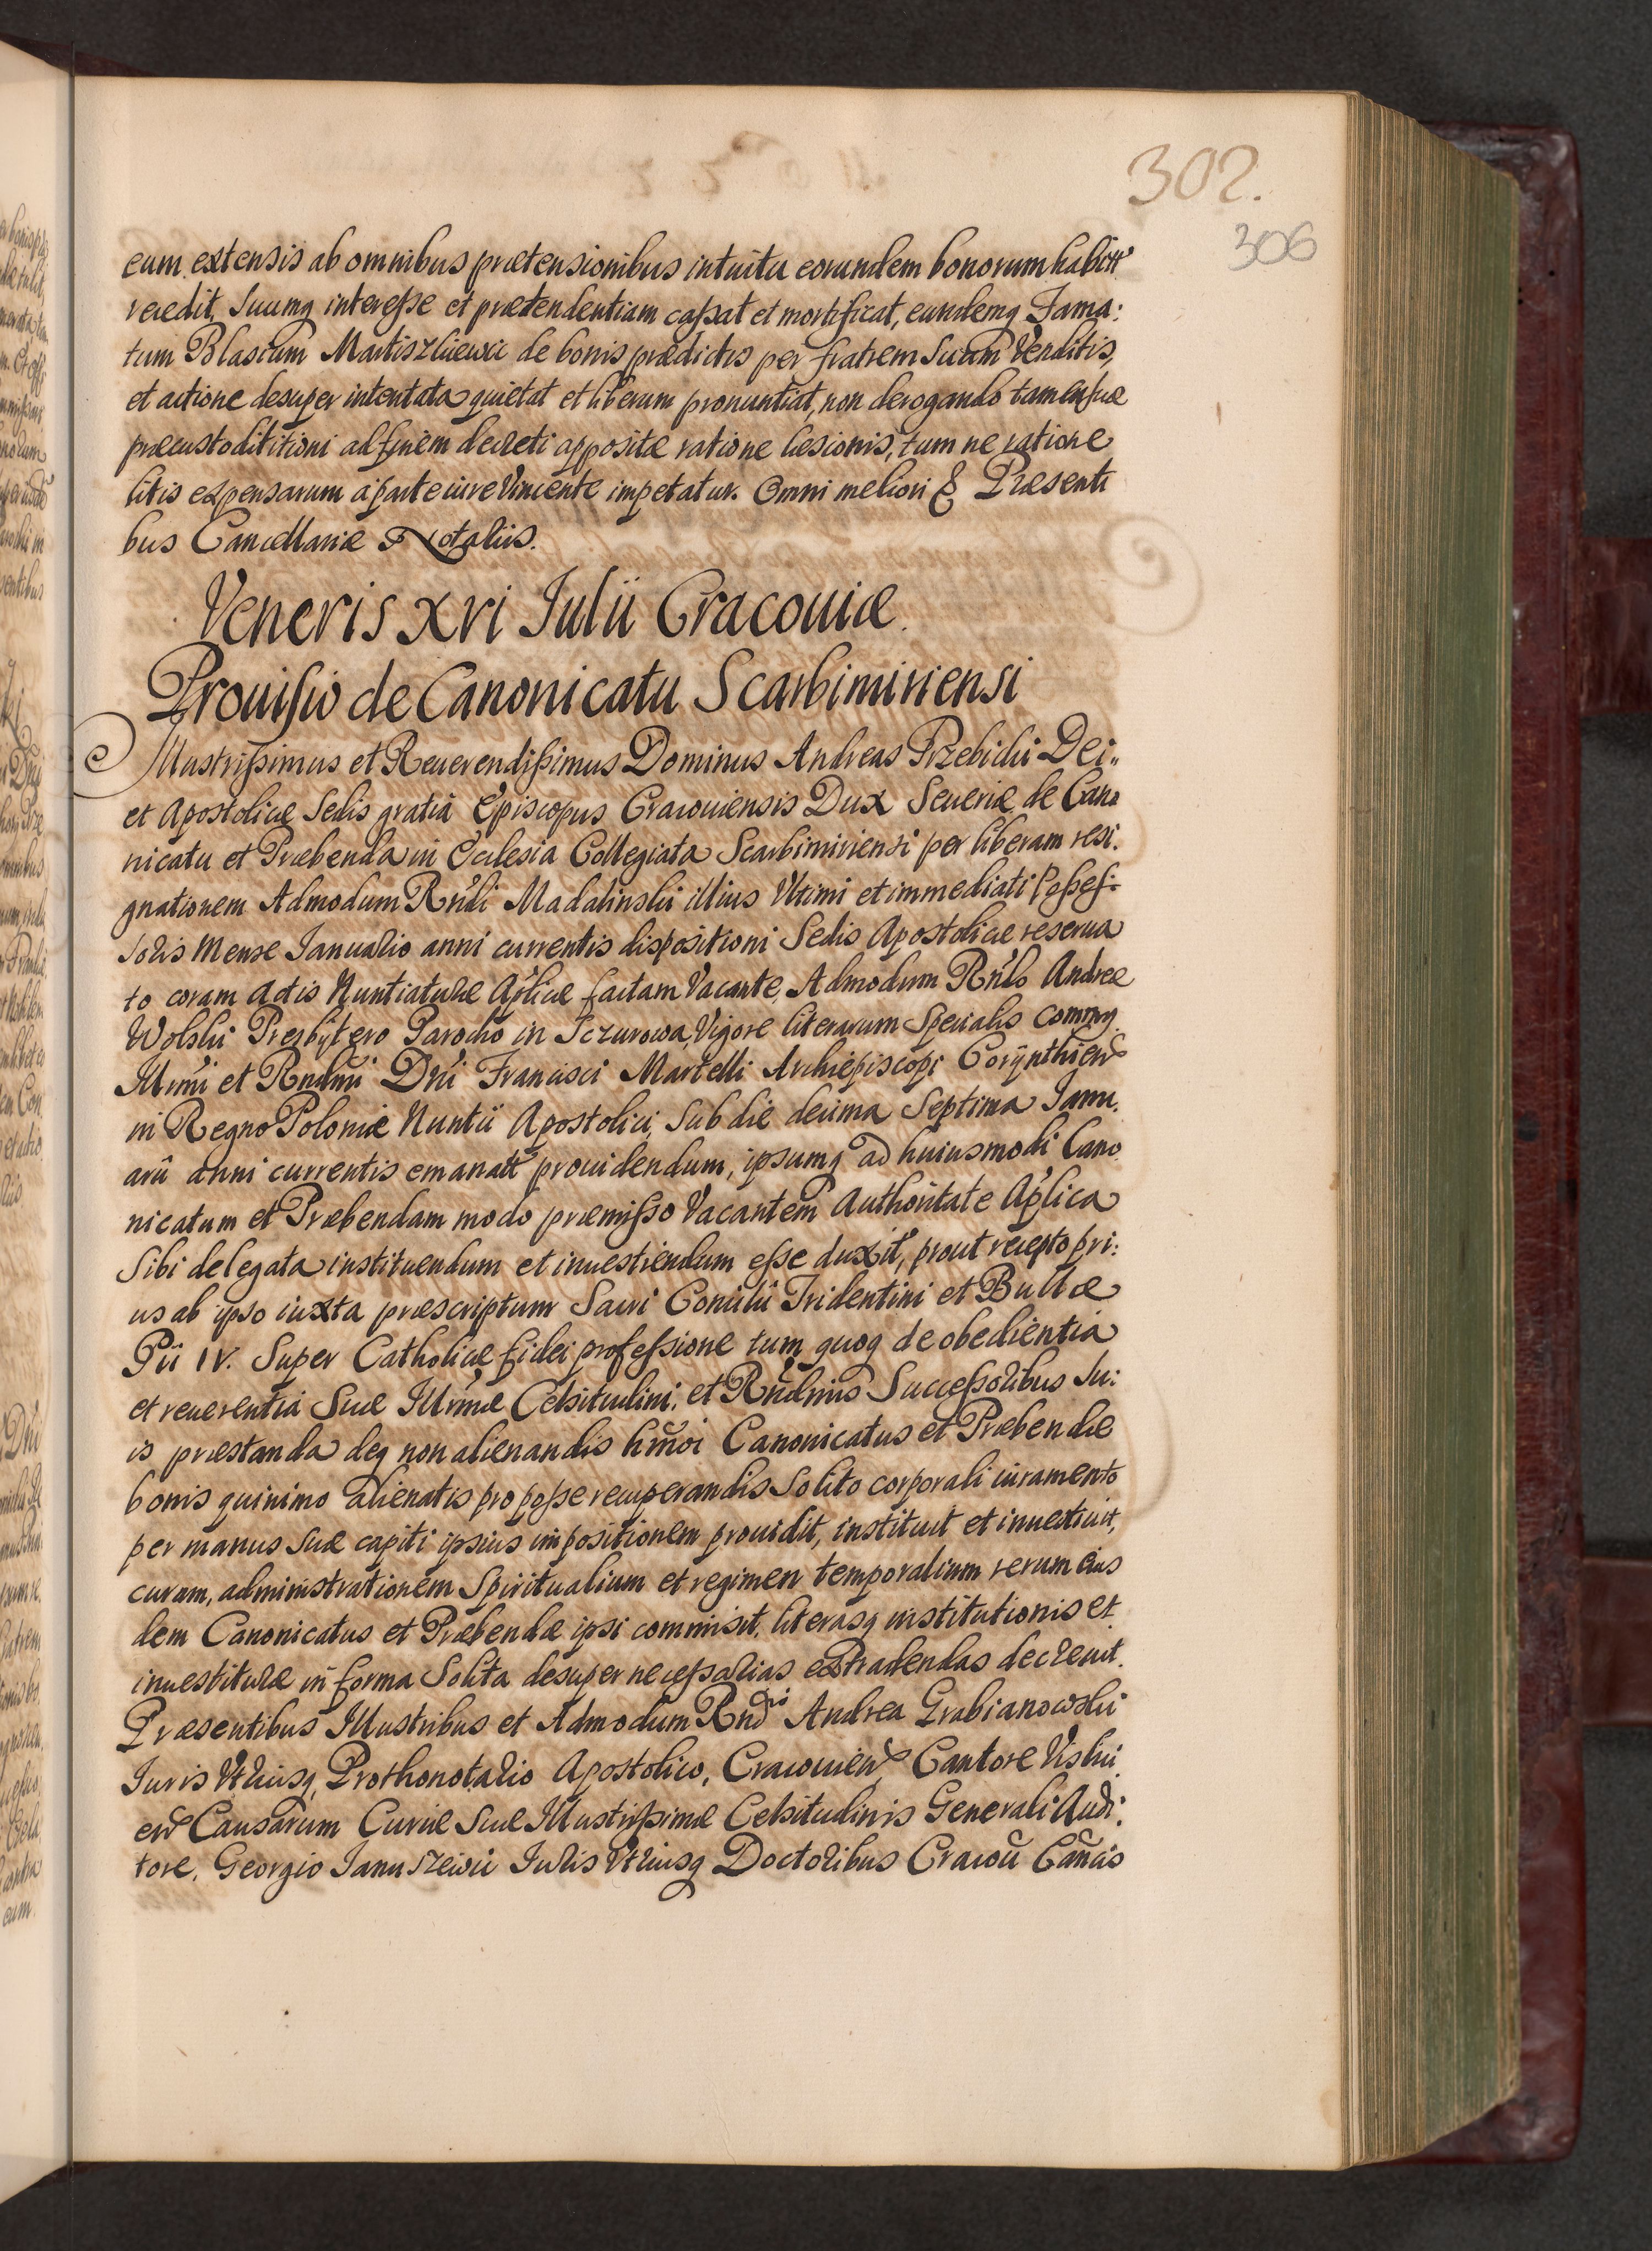 302.
306
eum extensis ab omnibus prætensionibus intuitu eorundem bonorum habitt
recedit, suumq interesse et prætendentiam cassat et mortificat, eundemq Fama:
tum Blasium Martiszkiewic de bonis prædictis per fratrem suum Venditis,
et actione desuper intentata quietat et liberum pronuntiat, non derogando tamen suæ
præcustoditioni ad finem decreti appositæ ratione læsionis, tum ne ratione
litis expensarum a parte iure Vincente impetatur. Omni meliori & Præsenti
bus Cancellariæ Notariis.
Veneris XVI Iulii Cracouiæ.
Prouisio de Canonicatu Scarbimiriensi
Illustrissimus et Reuerendissimus Dominus Andreas Trzebicki Dei
et Apostolicæ Sedis gratiâ Episcopus Cracouiensis Dux Seueriæ de Cano
nicatu et Præbenda in Ecclesia Collegiata Scarbimiriensi per liberam resi.
gnationem Admodum Rńdi Madalinski illius Vltimi et immediati Possesſ:
soris Mense Ianuario anni currentis dispositioni Sedis Apostolicæ reserua
to coram Actis Nuntiaturæ Aplicæ factam Vacante, Admodum Rńdo Andreæ
Wolski Presbytero Parocho in Sczurowa, Vigore literarum Specialis Commis.
Illrmi et Rndmi Dńi Francisci Martelli Archiepiscopi Corynthien
in Regno Poloniæ Nuntii Apostolici, sub die decima Septima Ianu.
arii anni currentis emanatt prouidendum, ipsumq ad huiusmodi Cano
nicatum et Præbendam modo præmisso Vacantem Authoritate Aplica
sibi delegata instituendum et inuestiendum esse duxit, prout recepto pri:
us ab ipso iuxta præscriptum Sacri Concilii Tridentini et Bullæ
Pii IV. Super Catholicæ fidei professione tum quoq de obedientia
et reuerentiâ Suæ Illrmæ Celsitudini, et Rńdmis Successoribus su:
is præstanda deq non alienandis hmoi Canonicatus et Præbendæ
bonis quinimo alienatis pro posse recuperandis solito corporali iuramento
per manus suæ capiti ipsius impositionem prouidit, instituit et inuestiuit,
curam, administrationem Spiritualium et regimen temporalium rerum eius
dem Canonicatus et Præbendæ ipsi commisit, literasq institutionis et
inuestituræ in forma solita desuper necessarias extradendas decreuit.
Præsentibus Illustribus et Admodum Rnd Andrea Grabianowski
Iuris Vtriusq Prothonotario Apostolico, Cracouien Cantore
en Causarum Curiæ Suæ Illustrissimæ Celsitudinis Generali Audi:
tore, Georgio Ianuszewic Iuris Vtriusq Doctoribus Cracou Cancis